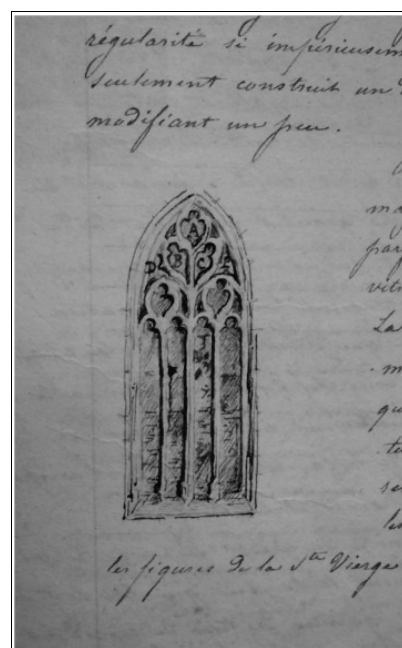 régularité si impérieusem
seulement construit un
modifiant un peu.
A
B C
D E
ma
par
vitr
La
m
qu
te
se
les
les figures de la Ste Vierge